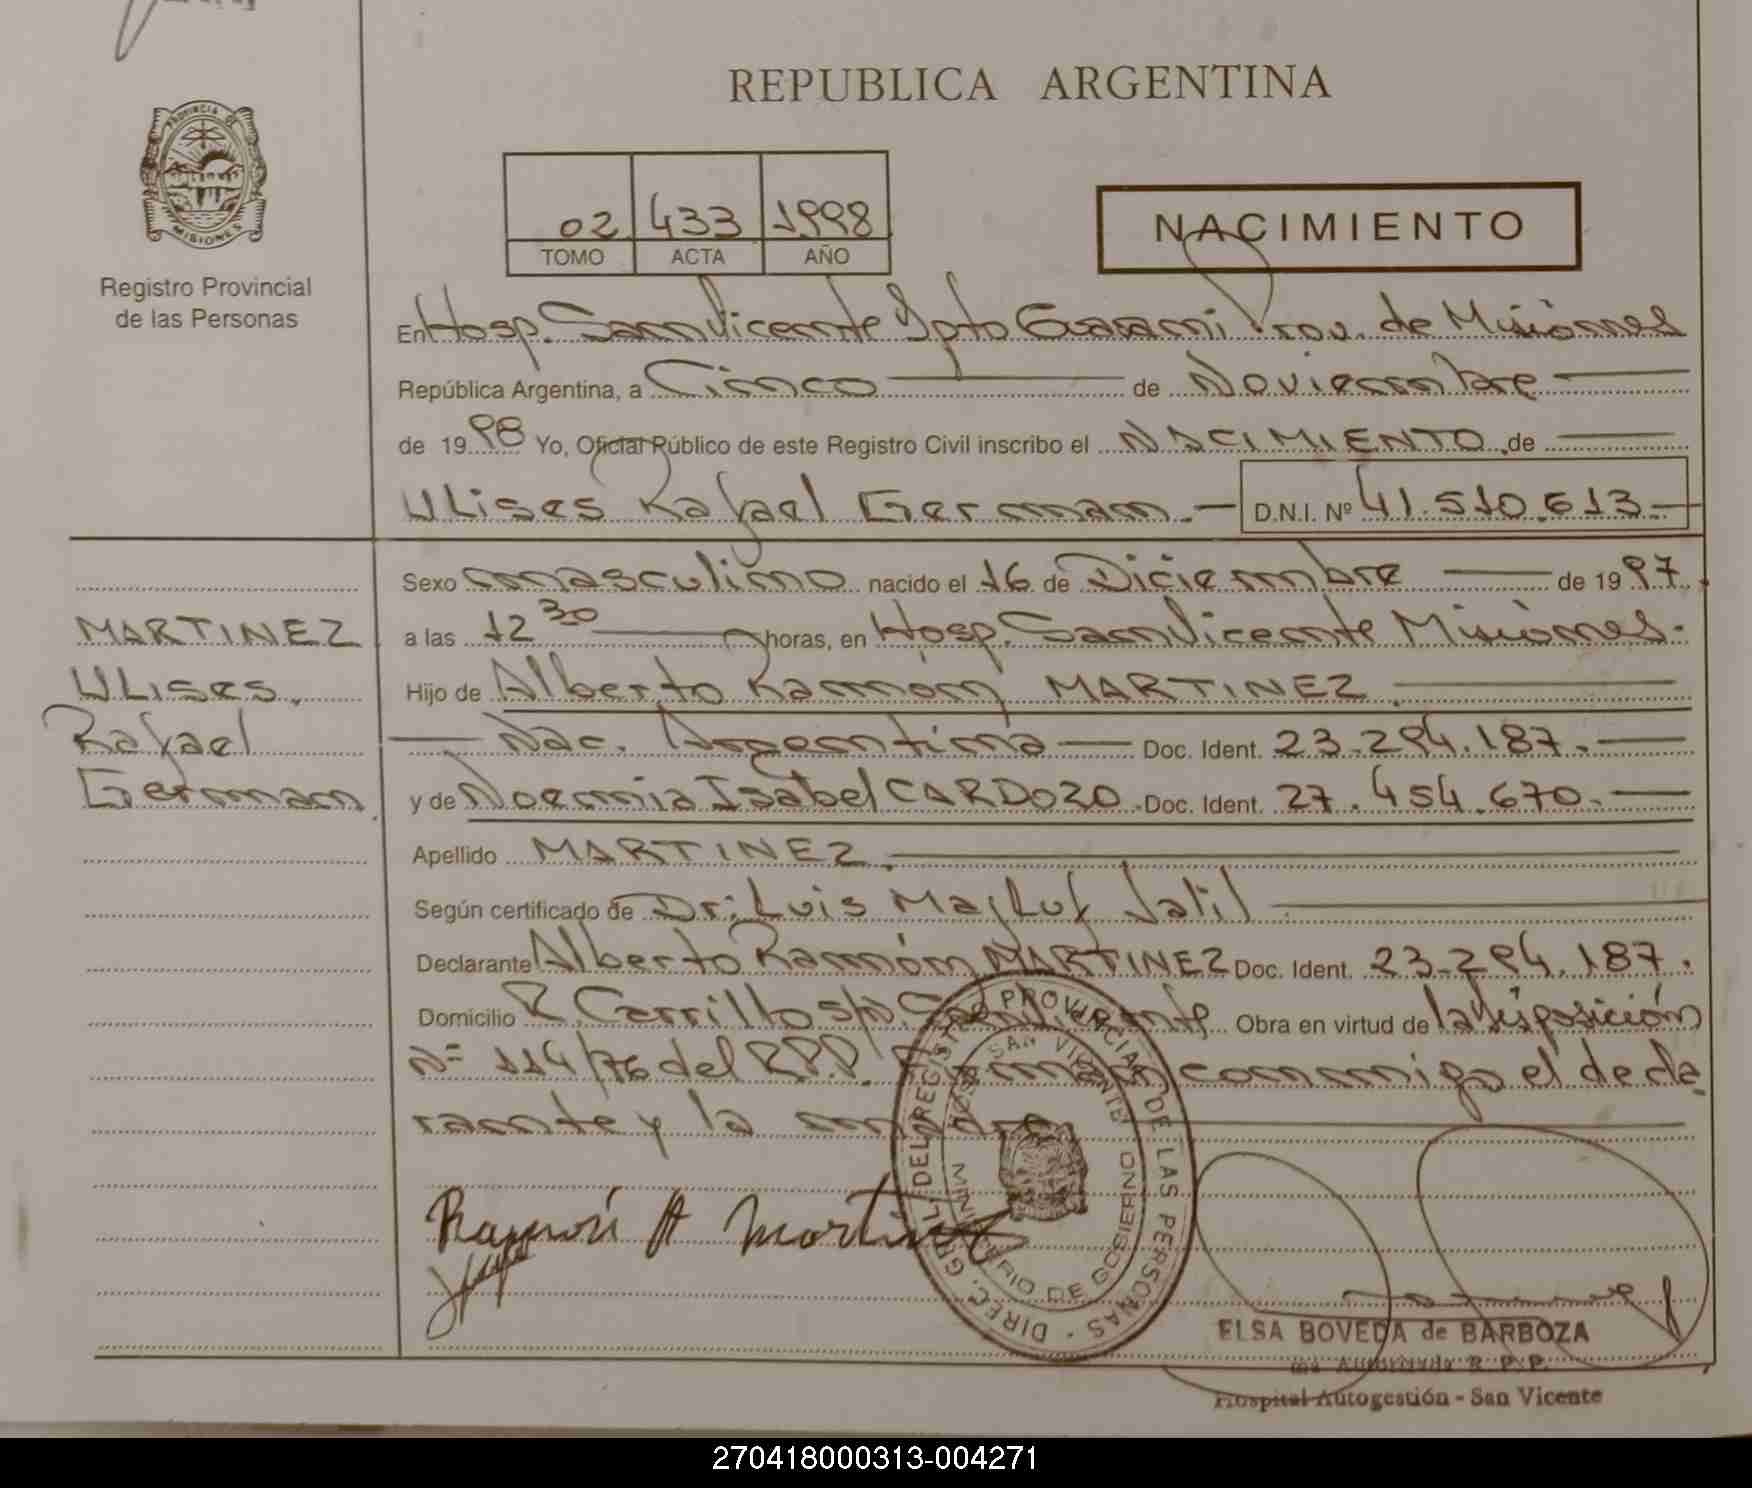 REPUBLICA ARGENTINA
PROVINCIA DE
MISIONES
Registro Provincial
de las Personas
02 433 1998
TOMO ACTA AÑO
NACIMIENTO
En Hosp. San Vicente Dpto Guarani Prov. de Misiones
República Argentina, a Cinco de Noviembre
de 1998 Yo, Oficial Público de este Registro Civil inscribo el NACIMIENTO de
Ulises Rafael German.- D.N.I. Nº 41.510.613.-
Sexo masculino nacido el 16 de Diciembre de 1997
a las 12 30 horas, en Hosp. San Vicente Misiones.-
Hijo de Alberto Ramón MARTINEZ.
Nac. Argentina Doc. Ident. 23.294.187.-
y de Noemia Isabel CARDOZO Doc. Ident. 27.454.670.-
Apellido MARTINEZ.
Según certificado de Dr: Luis Jalil
Declarante Alberto Ramón MARTINEZ Doc. Ident. 23.294.187.
Domicilio R. Carrillo s/n. San Vicente Obra en virtud de la disposición
Nº 114/76 del R.P.P. Firman conmigo el decla
rante y la madre
MARTINEZ
Ulises
Rafael
German.
Ramón A Martinez
DIREC. GRAL. DEL REGISTRO PROVINCIAL DE LAS PERSONAS
HOSP. SAN VICENTE
MINISTERIO DE GOBIERNO
ELSA BOVEDA de BARBOZA
Autorizada R. P. P.
Hospital Autogestión - San Vicente
270418000313-004271